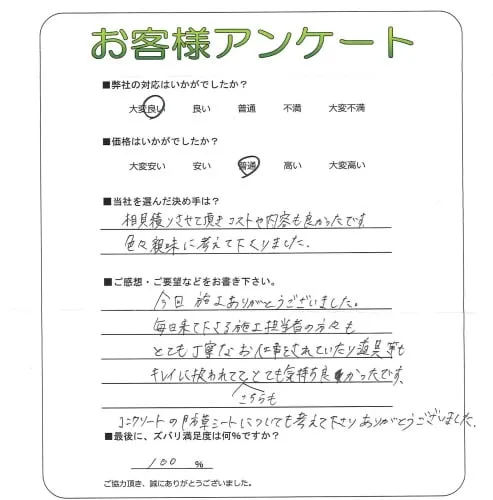 お客様アンケート
■弊社の対応はいかがでしたか？
大変良い 良い 普通 不満 大変不満
■価格はいかがでしたか？
大変安い 安い 普通 高い 大変高い
■当社を選んだ決め手は？
相見積りさせて頂きコストや内容も良かったです
色々親味に考えて下さりました.
■ご感想・ご要望などをお書き下さい。
今回 施工ありがとうございました。
毎日来て下さる施工担当者の方々も
とても丁寧なお仕事をされていたり道具等も
キレイに扱われててとても気持ち良かったです.
こちらも
コンクリートの防草シートについても考えて下さりありがとうございました.
■最後に、ズバリ満足度は何%ですか？
100 %
ご協力頂き、誠にありがとうございました。